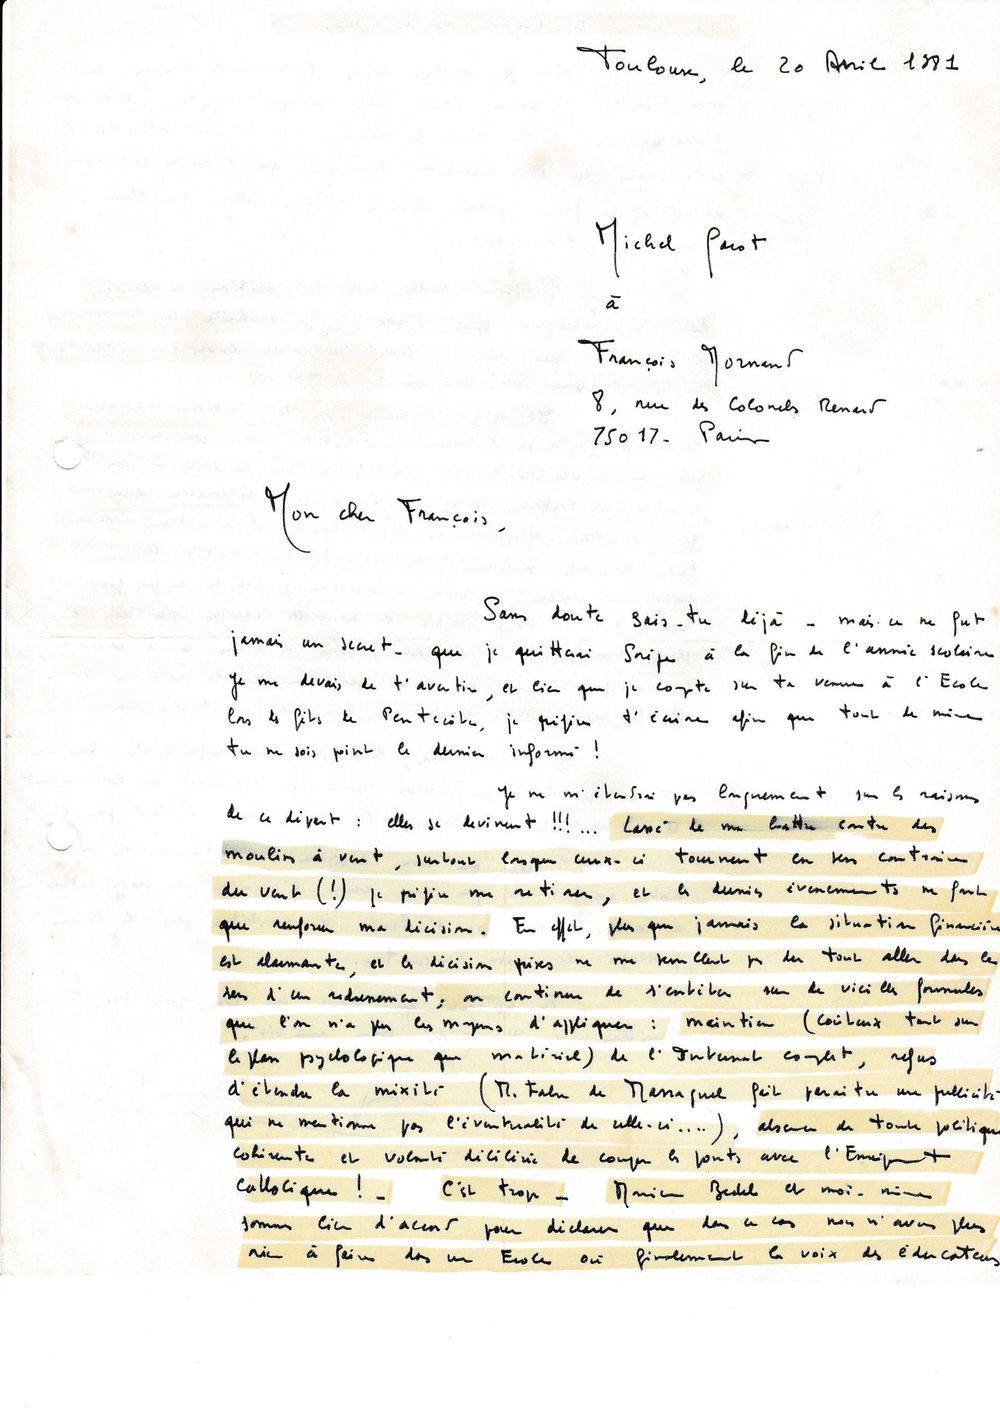 Toulouse, le 20 Avril 1981
Michel Parot
à
François Mornand
8, rue des Colonels Renard
75017 - Paris
Mon cher François,
Sans doute sais-tu déjà - mais ce ne fut
jamais un secret - que je quitterai Sorèze à la fin de l'année scolaire
Je me devais de t'avertir, et bien que je compte sur ta venue à l'Ecole
lors des fêtes de Pentecôte, je préfère t'écrire afin que tout de même
tu ne sois point le dernier informé !
Je ne m'étendrai pas longuement sur les raisons
de ce départ : elles se devinent !!! ... Lassé de me battre contre des
moulins à vent, surtout lorsque ceux-ci tournent en sens contraire
du vent (!) je préfère me retirer, et les derniers évènements ne font
que renforcer ma décision. En effet, plus que jamais la situation financière
est alarmante, et les décisions prises ne me semblent pas du tout aller dans le
sens d'un redressement, on continue de s'entêter sur de vieilles formules
que l'on n'a pas les moyens d'appliquer : maintien (coûteux tant sur
le plan psychologique que matériel) de l'Internat complet, refus
d'étendre la mixité (M. Fabre de Massaguel fait paraître une publicité
qui ne mentionne pas l'éventualité de celle-ci....), absence de toute politique
cohérente et volonté délibérée de couper les ponts avec l'Enseignt
Catholique ! - C'est trop - Monsieur Bedel et moi-même
sommes bien d'accord pour déclarer que dans ce cas nous n'avons plus
rien à faire dans une Ecole où finalement la voix des éducateurs